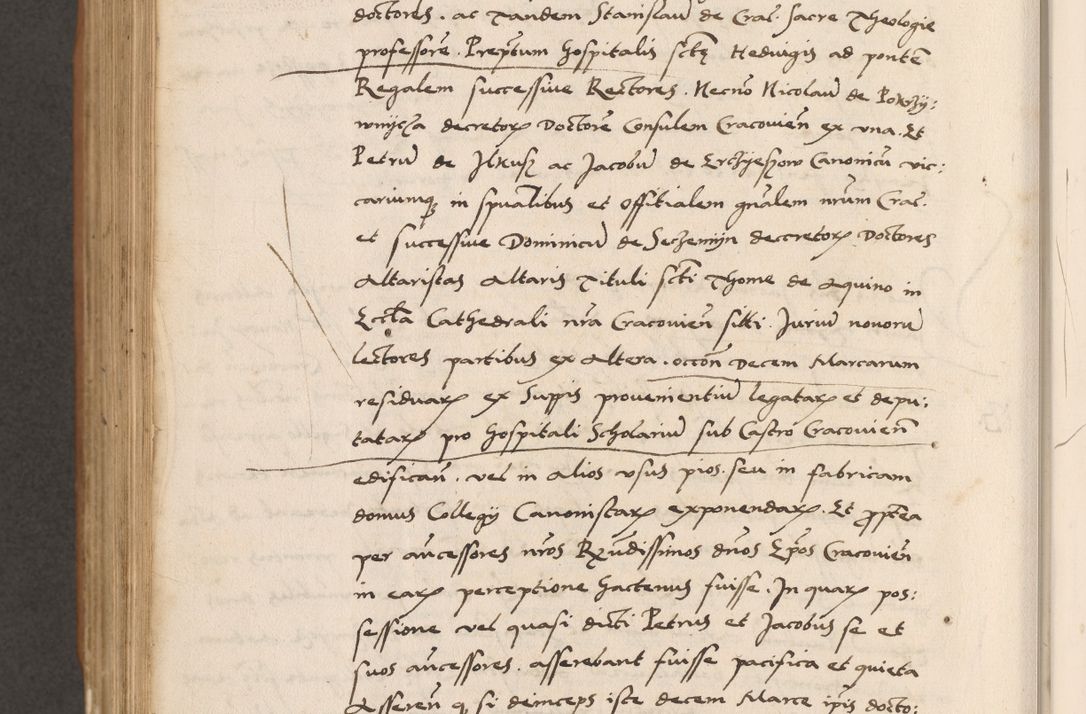 doctores. ac Tandem Stanislaū de Crac. Sacre Theologie
professorē. Prep̄tum hospitalis sctę Hedvigis ad pontē
Regalem successive Rectores. Necnō Nicolaū de
decretoꝝ Doctorē Consulem Cracovień ex una. Et
Petrū de Ilkusz ac Jacobū de Canonicū vic:
cariumqꝫ in spūalibus et offitialem gn̄alem nr̄um Crac.
et successive Dominicū de Seczemijn decretoꝝ Doctores
Altaristas Altaris Tituli scti Thome de Aquino in
Eccl̄a Cathedrali nr̄a Cracovień siti. Juriū novorū
lectores partibus ex Altera. occoñ Decem Marcarum
residuaꝝ ex Suppis provenientiū legataꝝ et depu:
tataꝝ pro hospitali Scholariū sub Castro Cracovień
edificań. vel in alios usus pios. seu in fabricam
domus Collegij Canonistaꝝ exponendaꝝ. Et ꝓptea
per añcessores nr̄os Rx̄ndissimos dn̄os Ep̄os Cracovień
in eaꝝ perceptione hactenus fuisse. In quaꝝ pos:
sessione vel quasi dicti Petrus et Jacobus se et
suos añcessores. asserebant fuisse pacifica et quieta
Asseren̄ q si deinceps iste decem Marce ip̄is docto: